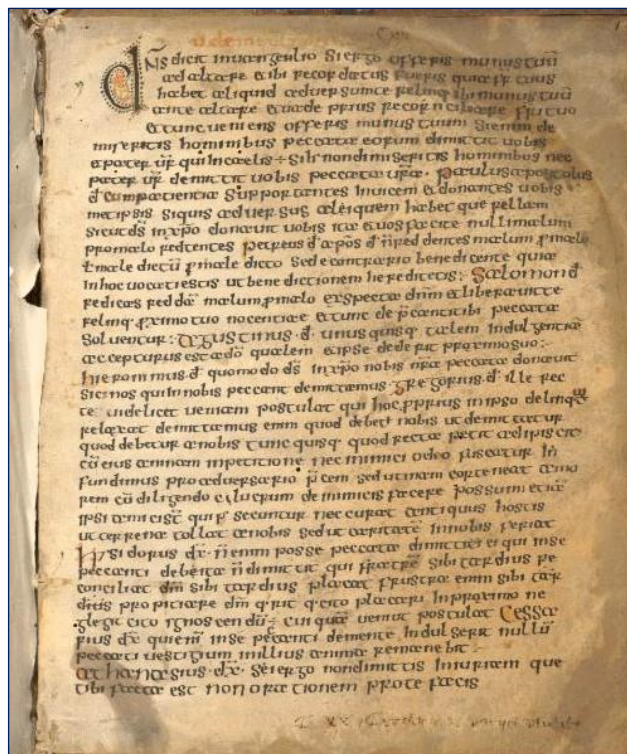 DNS dicit in euangelio Si ergo offeris munus tuū
ad altare et ibi recordatus fueris quia fr̄ tuus
habet aliquid aduersum te relinq; ibi munus tuū
ante altare et uade prius reconciliare fr̄i tuo
et tunc ueniens offeris munus tuum Si enim de
miseritis hominibus peccata eorum dimittit uobis
et pater ur̄ qui in caelis ÷ Si h̄ non dimiseritis hominibus nec
pater ur̄ demittit uobis peccata ur̄a. Paulus apostolus
d̄ cum patientia supportantes inuicem et donantes uobis
met ipsis si quis aduersus aliquem habet querellam
sicut d̄s in xp̄o donauit uobis ita et uos facite nulli malum
pro malo reddentes Petrus d̄ ap̄os d̄ n̄ reddentes malum p̄ malo
t̄ male dictū p̄ male dicto sed e contrario benedicente quia
in hoc uocati estis ut benedictionem hereditetis: Salomon d̄
ne dicas reddā malum p̄ malo exspecta dn̄m et liberauit te
relinq; p̄ximo tuo nocenti et tunc dep̄canti tibi peccata
soluentur: Agustinus d̄ unusquisq; talem indulgentiā
accepturus est a dō qualem et ipse dederit proximo suo:
hieronimus d̄ quomodo d̄s in xp̄o nobis nr̄a peccata donauit
sic et nos qui in nobis peccant demittamus. Gregorius d̄ ille rec
te uidelicet ueniam postulat qui hoc p̄prius in ipso delinq;
relaxat demittamus enim quod debet nobis ut demittatur
quod debetur a nobis tunc quisq; quod recta petit adipiscit
cū eius animam in petitione nec inimici odio fuscatur In
fundimus pro aduersario p̄cem sed utinam cor teneat amo
rem cū diligendo et lucrum de inimicis facere possum etiā
ipsi amicis
ut terrena tollat a nobis sed ut caritatē in nobis feriat
hisidorus dx̄ n̄ enim posse peccata dimitti ei qui in se
peccanti debeta n̄ dimittit qui fratrē sibi tardius re
conciliat dm̄ sibi tardius placat frustra enim sibi tar
dius propitiare dm̄ q̄rit q̄ cito placari in proximo ne
glegit cito ignoscendū ÷ cui quā ueniā postulat Cessa
rius dx̄ qui enī in se peccanti demente indulserit nullū
peccati uestigium in illius anima remanebit
Athanasius dx̄ Si ergo non dimittis iniuriam que
tibi facta est non orationem pro te facis